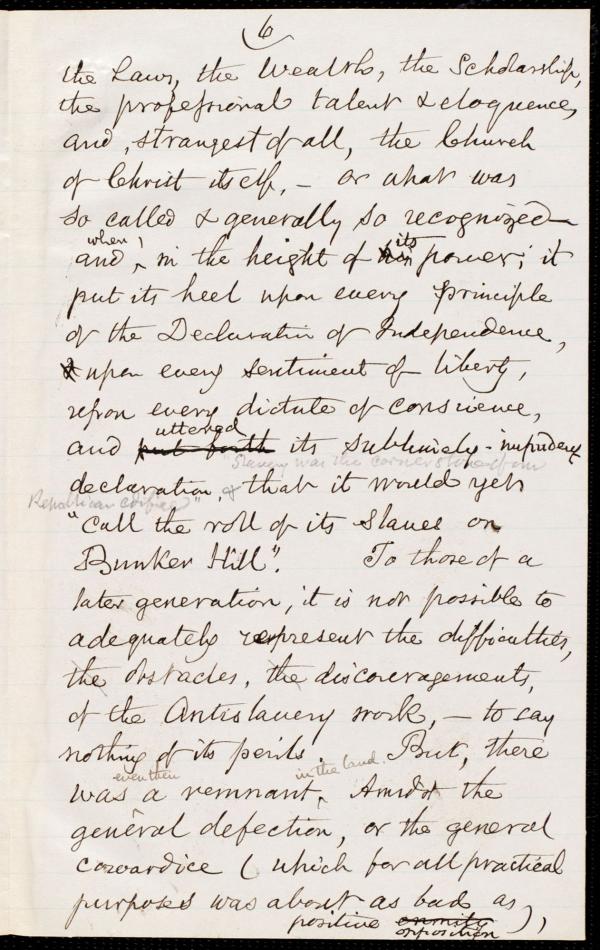 6
the Laws, the Wealth, the Scholarship,
the professional talent & eloquence,
and, strangest of all, the Church
of Christ itself, – or what was
so called & generally so recognized –
when
its
and, in the height of his power, it
put its heel upon every principle
of the Declaration of Independence,
& upon every sentiment of liberty,
upon every dictate of conscience,
uttered
and put forth its sublimely-impudent
Slavery was the corner stone of our
declaration, & that it would yet
Republican edifice"
"call the roll of its Slaves on
Bunker Hill". To those of a
later generation, it is not possible to
adequately represent the difficulties,
the obstacles, the discouragements,
of the Antislavery work, – to say
nothing of its perils. But, there
even then
in the land.
was a remnant, Amidst the
general defection, or the general
cowardice (which for all practical
purposes was about as bad as),
positive enmity
opposition